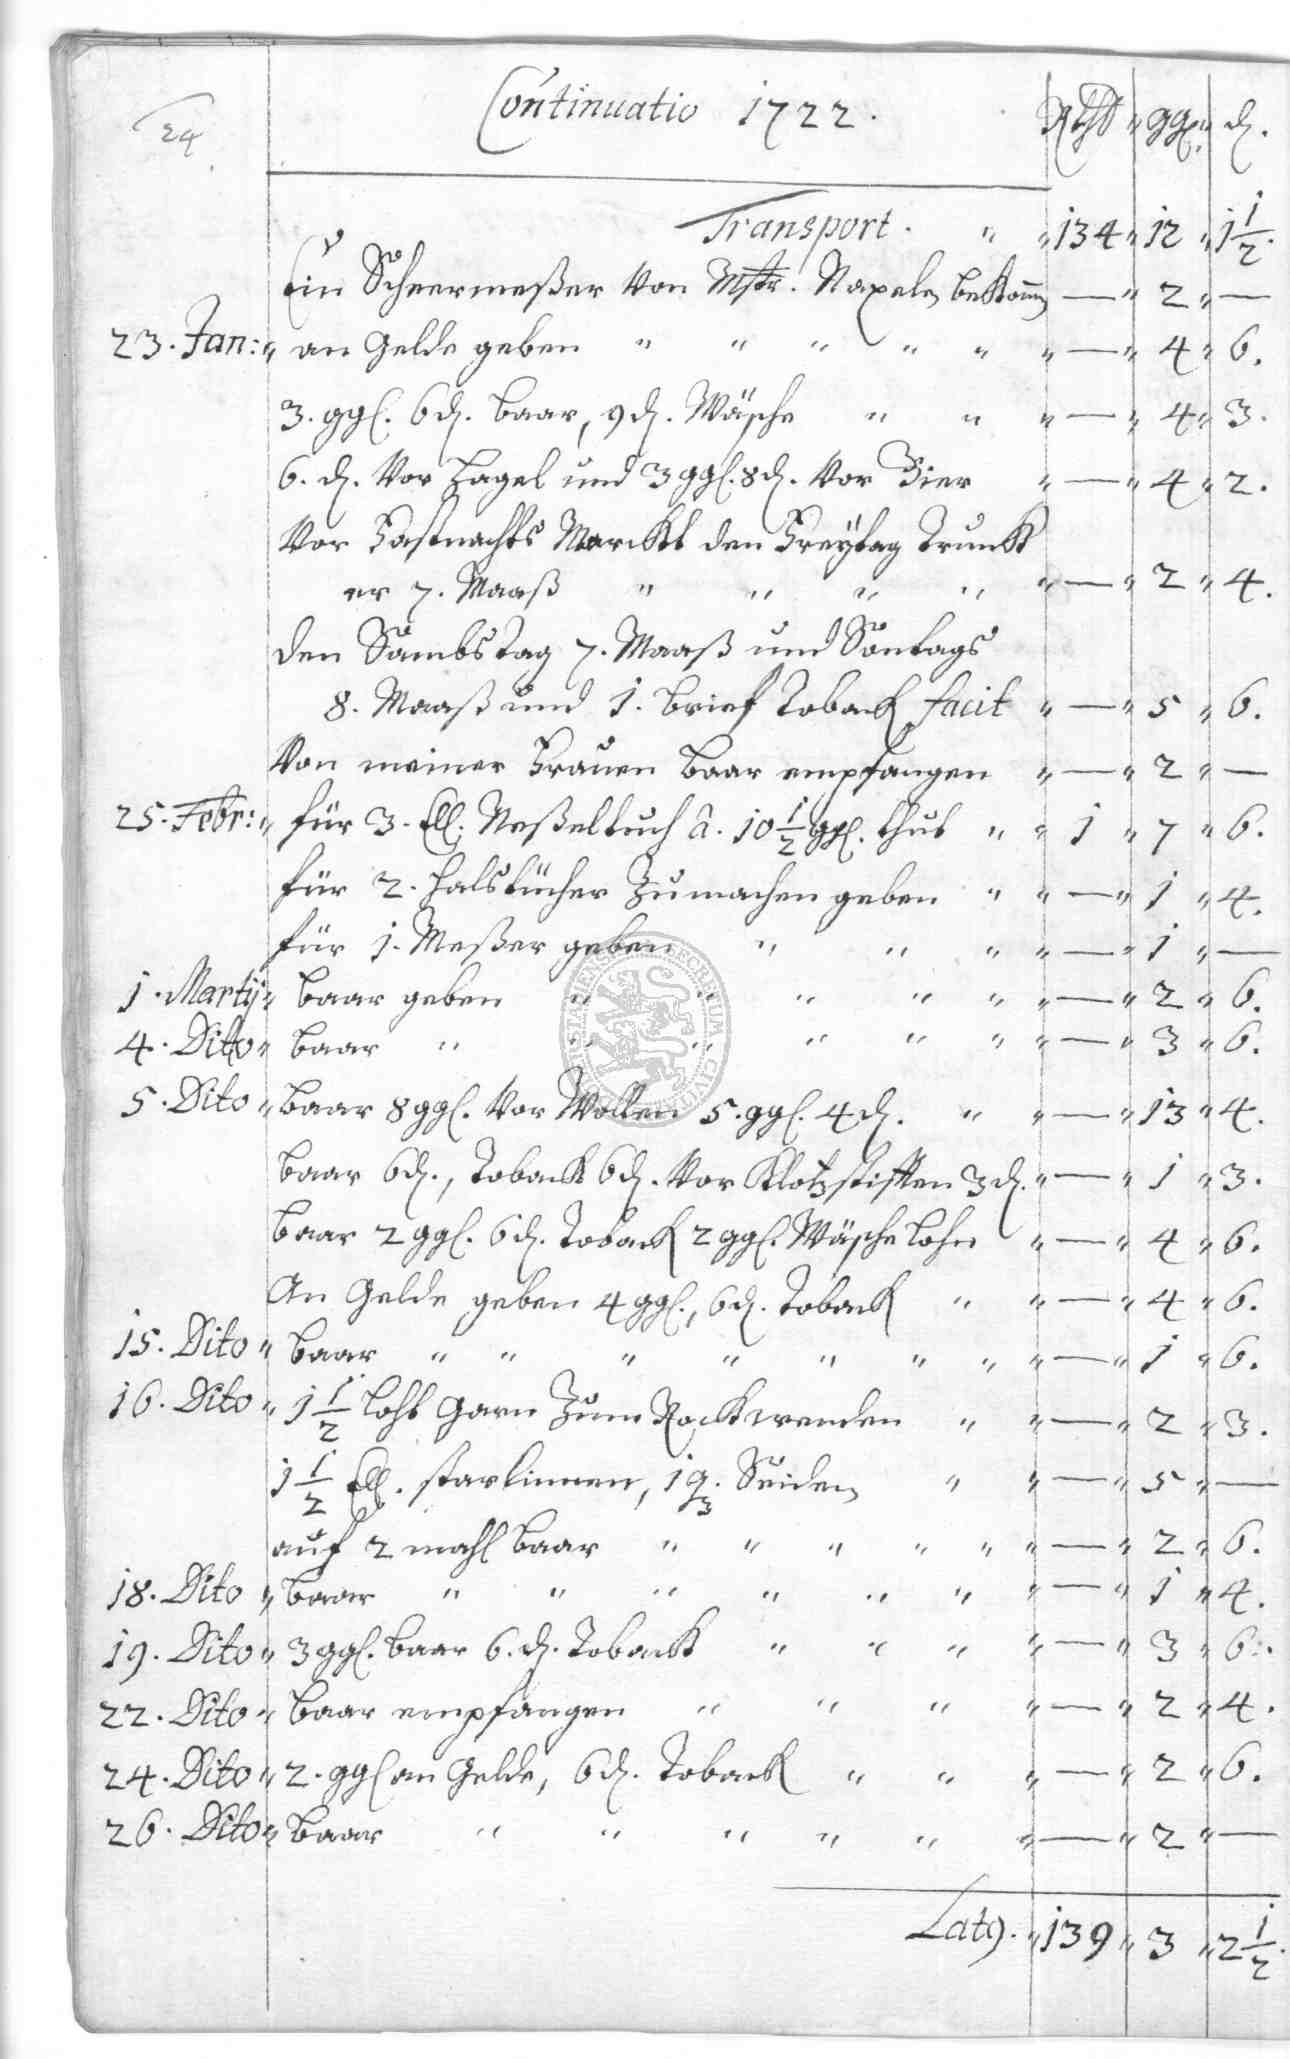 24
Continuatio 1722. Rthl " ggl " d.
Transport. " " 134 " 12 " 1 1/2.
Ein Scheermeßer von Mstr. Naxelen bekom̄en — " 2 " —
23. Jan: " an Gelde geben " " " " " " — " 4 " 6.
3. ggl. 6 d. baar, 9 d. Wäsche " " " — " 4 " 3.
6. d. vor Hagel und 3 ggl. 8 d. vor Bier " — " 4 " 2.
Vor Fastnachts Marckt den Freÿtag Trunck
er 7. Maaß " " " " " — " 2 " 4.
den Sambstag 7. Maaß und Sontags
8. Maaß und 1. brief Toback facit " — " 5 " 6.
Von meiner Frauen baar empfangen " — " 2 " —
25. Febr: " für 3. Ell. Neßeltuch â. 10 1/2 ggl. thut " " 1 " 7 " 6.
für 2. Halstücher Zumachen geben " " — " 1 " 4.
für 1. Meßer geben " " " " — " 1 " —
1. Martij " baar geben " " " " " " — " 2 " 6.
4. Ditto " baar " " " " " " " — " 3 " 6.
5. Dito " baar 8 ggl. vor Wollen 5. ggl. 4 d. " " — " 13 " 4.
baar 6 d., Toback 6 d. vor Klotzstifften 3 d. " — " 1 " 3.
baar 2 ggl. 6 d. Toback 2 ggl. Wäschelohn " — " 4 " 6.
An Gelde geben 4 ggl., 6 d. Toback " " — " 4 " 6.
15. Dito " baar " " " " " " " " — " 1 " 6.
16. Dito " 1 1/2 loht Garn Zum Rockwenden " " — " 2 " 3.
1 1/2 Ell. starlinnen, 1 q. Seiden " " — " 5 " —
auf 2 mahl baar " " " " " " — " 2 " 6.
18. Dito " baar " " " " " " " — " 1 " 4.
19. Dito " 3 ggl. baar 6. d. Toback " " " " — " 3 " 6.
22. Dito " baar empfangen " " " " — " 2 " 4.
24. Dito " 2. ggl an Gelde, 6 d. Toback " " " — " 2 " 6.
26. Dito " baar " " " " " " — " 2 " —
Lat9. " 139 " 3 " 2 1/2.